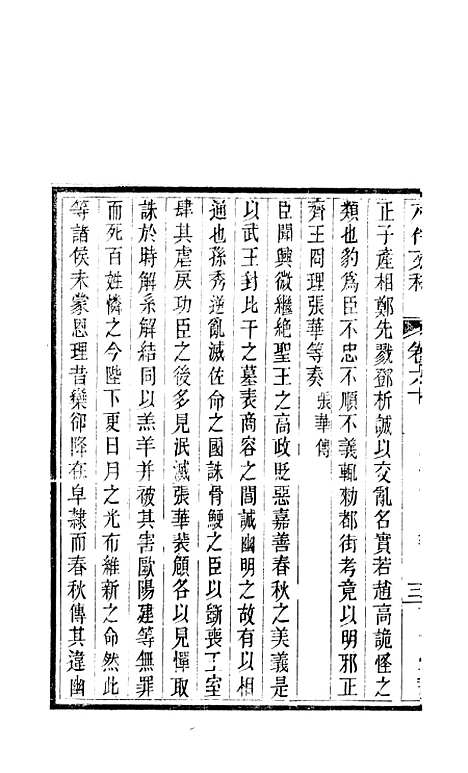 卷六十
三
正子產相鄭先戮鄧析誠以交亂名實若趙高詭怪之
類也豹爲臣不忠不順不義輒勅都街考竟以明邪正
齊王冏理張華等奏 張華傳
臣聞興微繼絶聖王之高政貶惡嘉善春秋之美義是
以武王封比干之墓表商容之閭誠幽明之故有以相
通也孫秀逆亂滅佐命之國誅骨鯁之臣以斲喪王室
肆其虐戾功臣之後多見泯滅張華裴頠各以見憚取
誅於時解系解結同以羔羊并被其害歐陽建等無罪
而死百姓憐之今陛下更日月之光布維新之命然此
等諸侯未蒙恩理昔欒郤降在皁隸而春秋傳其違幽